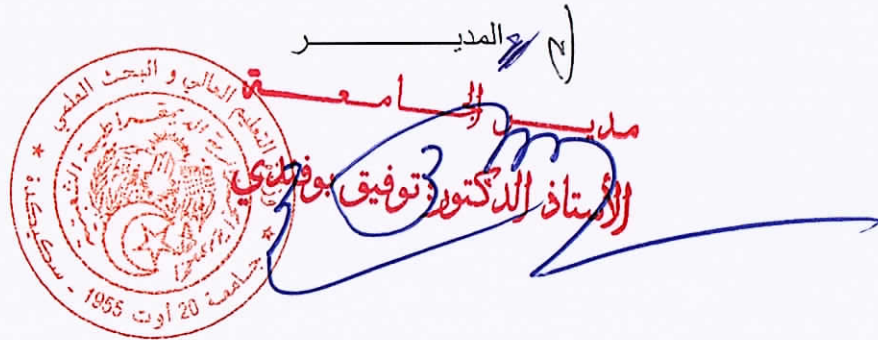 المديـــــــــر
مديـــــر الجـــامـعـــــة
الأستاذ الدكتور: توفيق بوفندي
وزارة التعليم العالي و البحث العلمي
الجمهورية الجزائرية الديمقراطية الشعبية
جامعة 20 أوت 1955 - سكيكدة